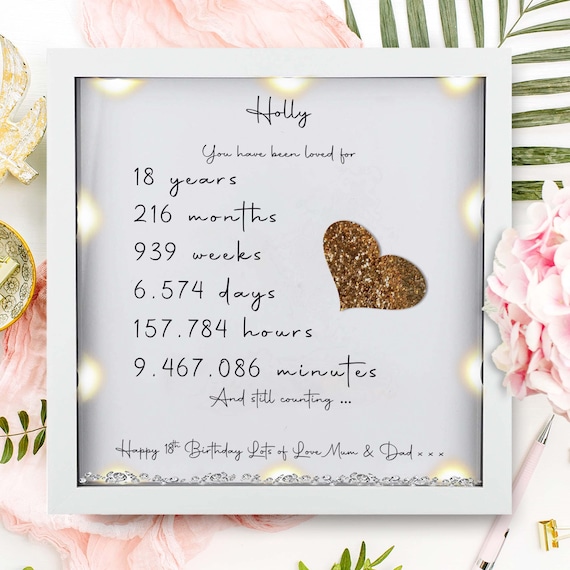 Holly
You have been loved for
18 years
216 months
939 weeks
6.574 days
157.784 hours
9.467.086 minutes
And still counting ...
Happy 18th Birthday Lots of Love Mum & Dad x x x